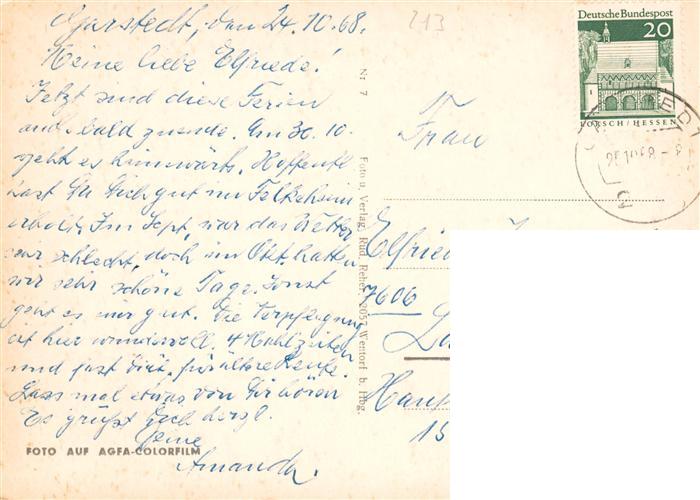 Garstedt, den 24.10.68.
Meine liebe Elfriede!
Jetzt sind diese Ferien
auch bald zuende. Am 30.10.
geht es heimwärts. Hoffentl.
hast Du Dich gut im
erholt. Im Sept. war das Wetter
sehr schlecht, doch im Okt. hatten
wir sehr schöne Tage. Sonst
geht es mir gut. Die Verpflegung
ist hier wundervoll. 4 Mahlzeiten
und fast Diät, für ältere Leute.
Lass mal etwas von Dir hören
Es grüßt Dich herzl.
Deine
Amanda.
FOTO AUF AGFA-COLORFILM
Nr 7
Foto u. Verlag, Rud. Reher, 2057 Wentorf b. Hbg.
213
Deutsche Bundespost
20
LORSCH/HESSEN
Frau
Elfried
7606
Haupt
15